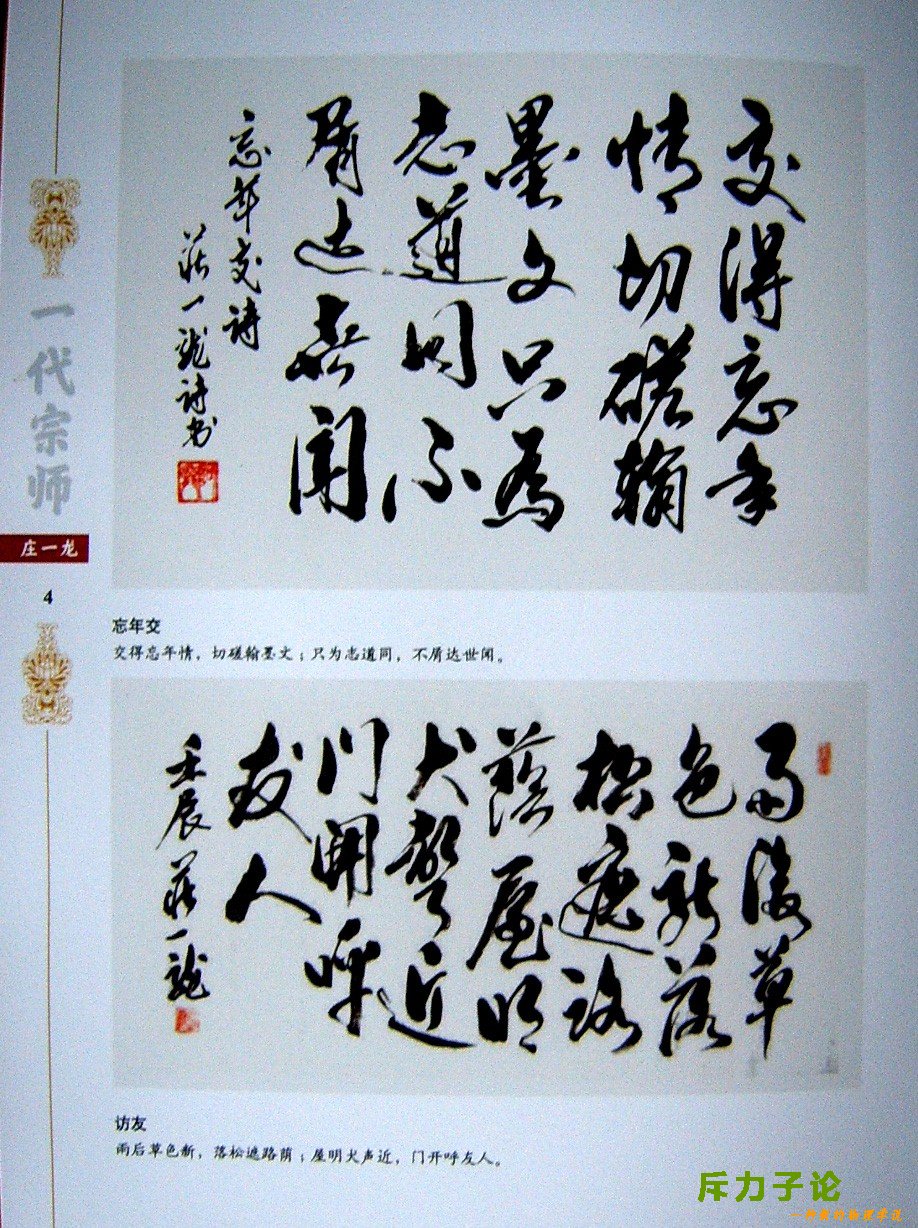 交得忘年
情切磋翰
墨文只為
志道同不
屑达世闻
忘年交诗
莊一龙诗书
一代宗师
庄一龙
4
忘年交
交得忘年情，切磋翰墨文；只为志道同，不屑达世闻。
雨後草
色新落
松遮路
蔭屋明
犬聲近
门開呼
友人
壬辰莊一龍
访友
雨后草色新，落松遮路荫；屋明犬声近，门开呼友人。
斥力子论